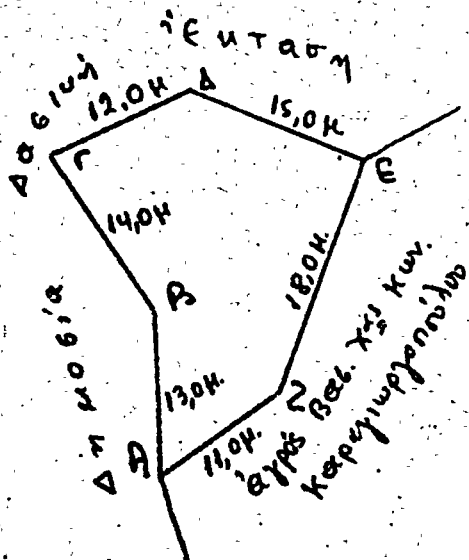 ἔκταση
Δασική
Δ
12,0μ
15,0μ
Γ
Ε
14,0μ
Β
18,0μ.
Δημοσία
13,0μ.
Ζ
Α
11,0μ.
ἀγρός Βασ. χας Κων.
Καραγιωργοπούλου